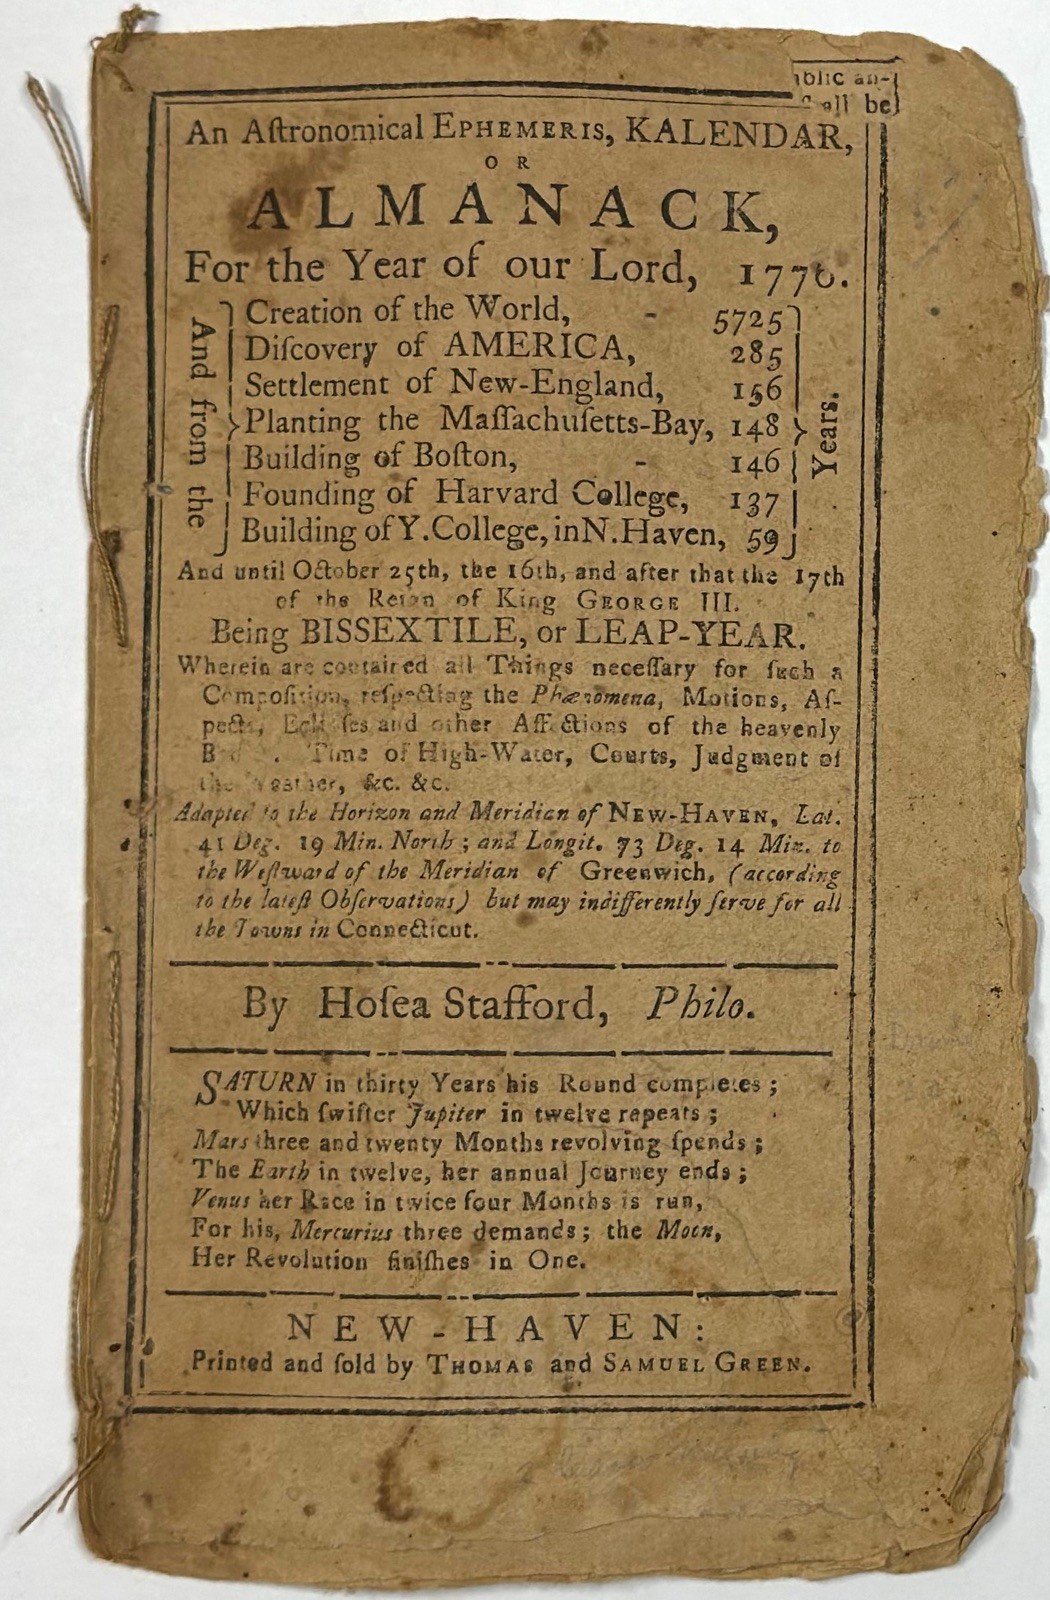 ublic an-
shall be
An Aſtronomical EPHEMERIS, KALENDAR,
OR
ALMANACK,
For the Year of our Lord, 1776.
And from the
Creation of the World, - 5725
Diſcovery of AMERICA, 285
Settlement of New-England, 156
Planting the Maſſachuſetts-Bay, 148
Building of Boſton, - 146
Founding of Harvard College, 137
Building of Y. College, in N. Haven, 59
Years.
And until October 25th, the 16th, and after that the 17th
of the Reign of King GEORGE III.
Being BISSEXTILE, or LEAP-YEAR.
Wherein are contained all Things neceſſary for ſuch a
Compoſition, reſpecting the Phænomena, Motions, Aſ-
pects, Eclipſes and other Affections of the heavenly
Time of High-Water, Courts, Judgment of
the Weather, &c. &c.
Adapted to the Horizon and Meridian of NEW-HAVEN, Lat.
41 Deg. 19 Min. North; and Longit. 73 Deg. 14 Min. to
the Weſtward of the Meridian of Greenwich, (according
to the lateſt Obſervations) but may indifferently ſerve for all
the Towns in Connecticut.
By Hoſea Stafford, Philo.
SATURN in thirty Years his Round completes;
Which ſwifter Jupiter in twelve repeats;
Mars three and twenty Months revolving ſpends;
The Earth in twelve, her annual Journey ends;
Venus her Race in twice four Months is run,
For his, Mercurius three demands; the Moon,
Her Revolution finiſhes in One.
NEW-HAVEN:
Printed and ſold by THOMAS and SAMUEL GREEN.